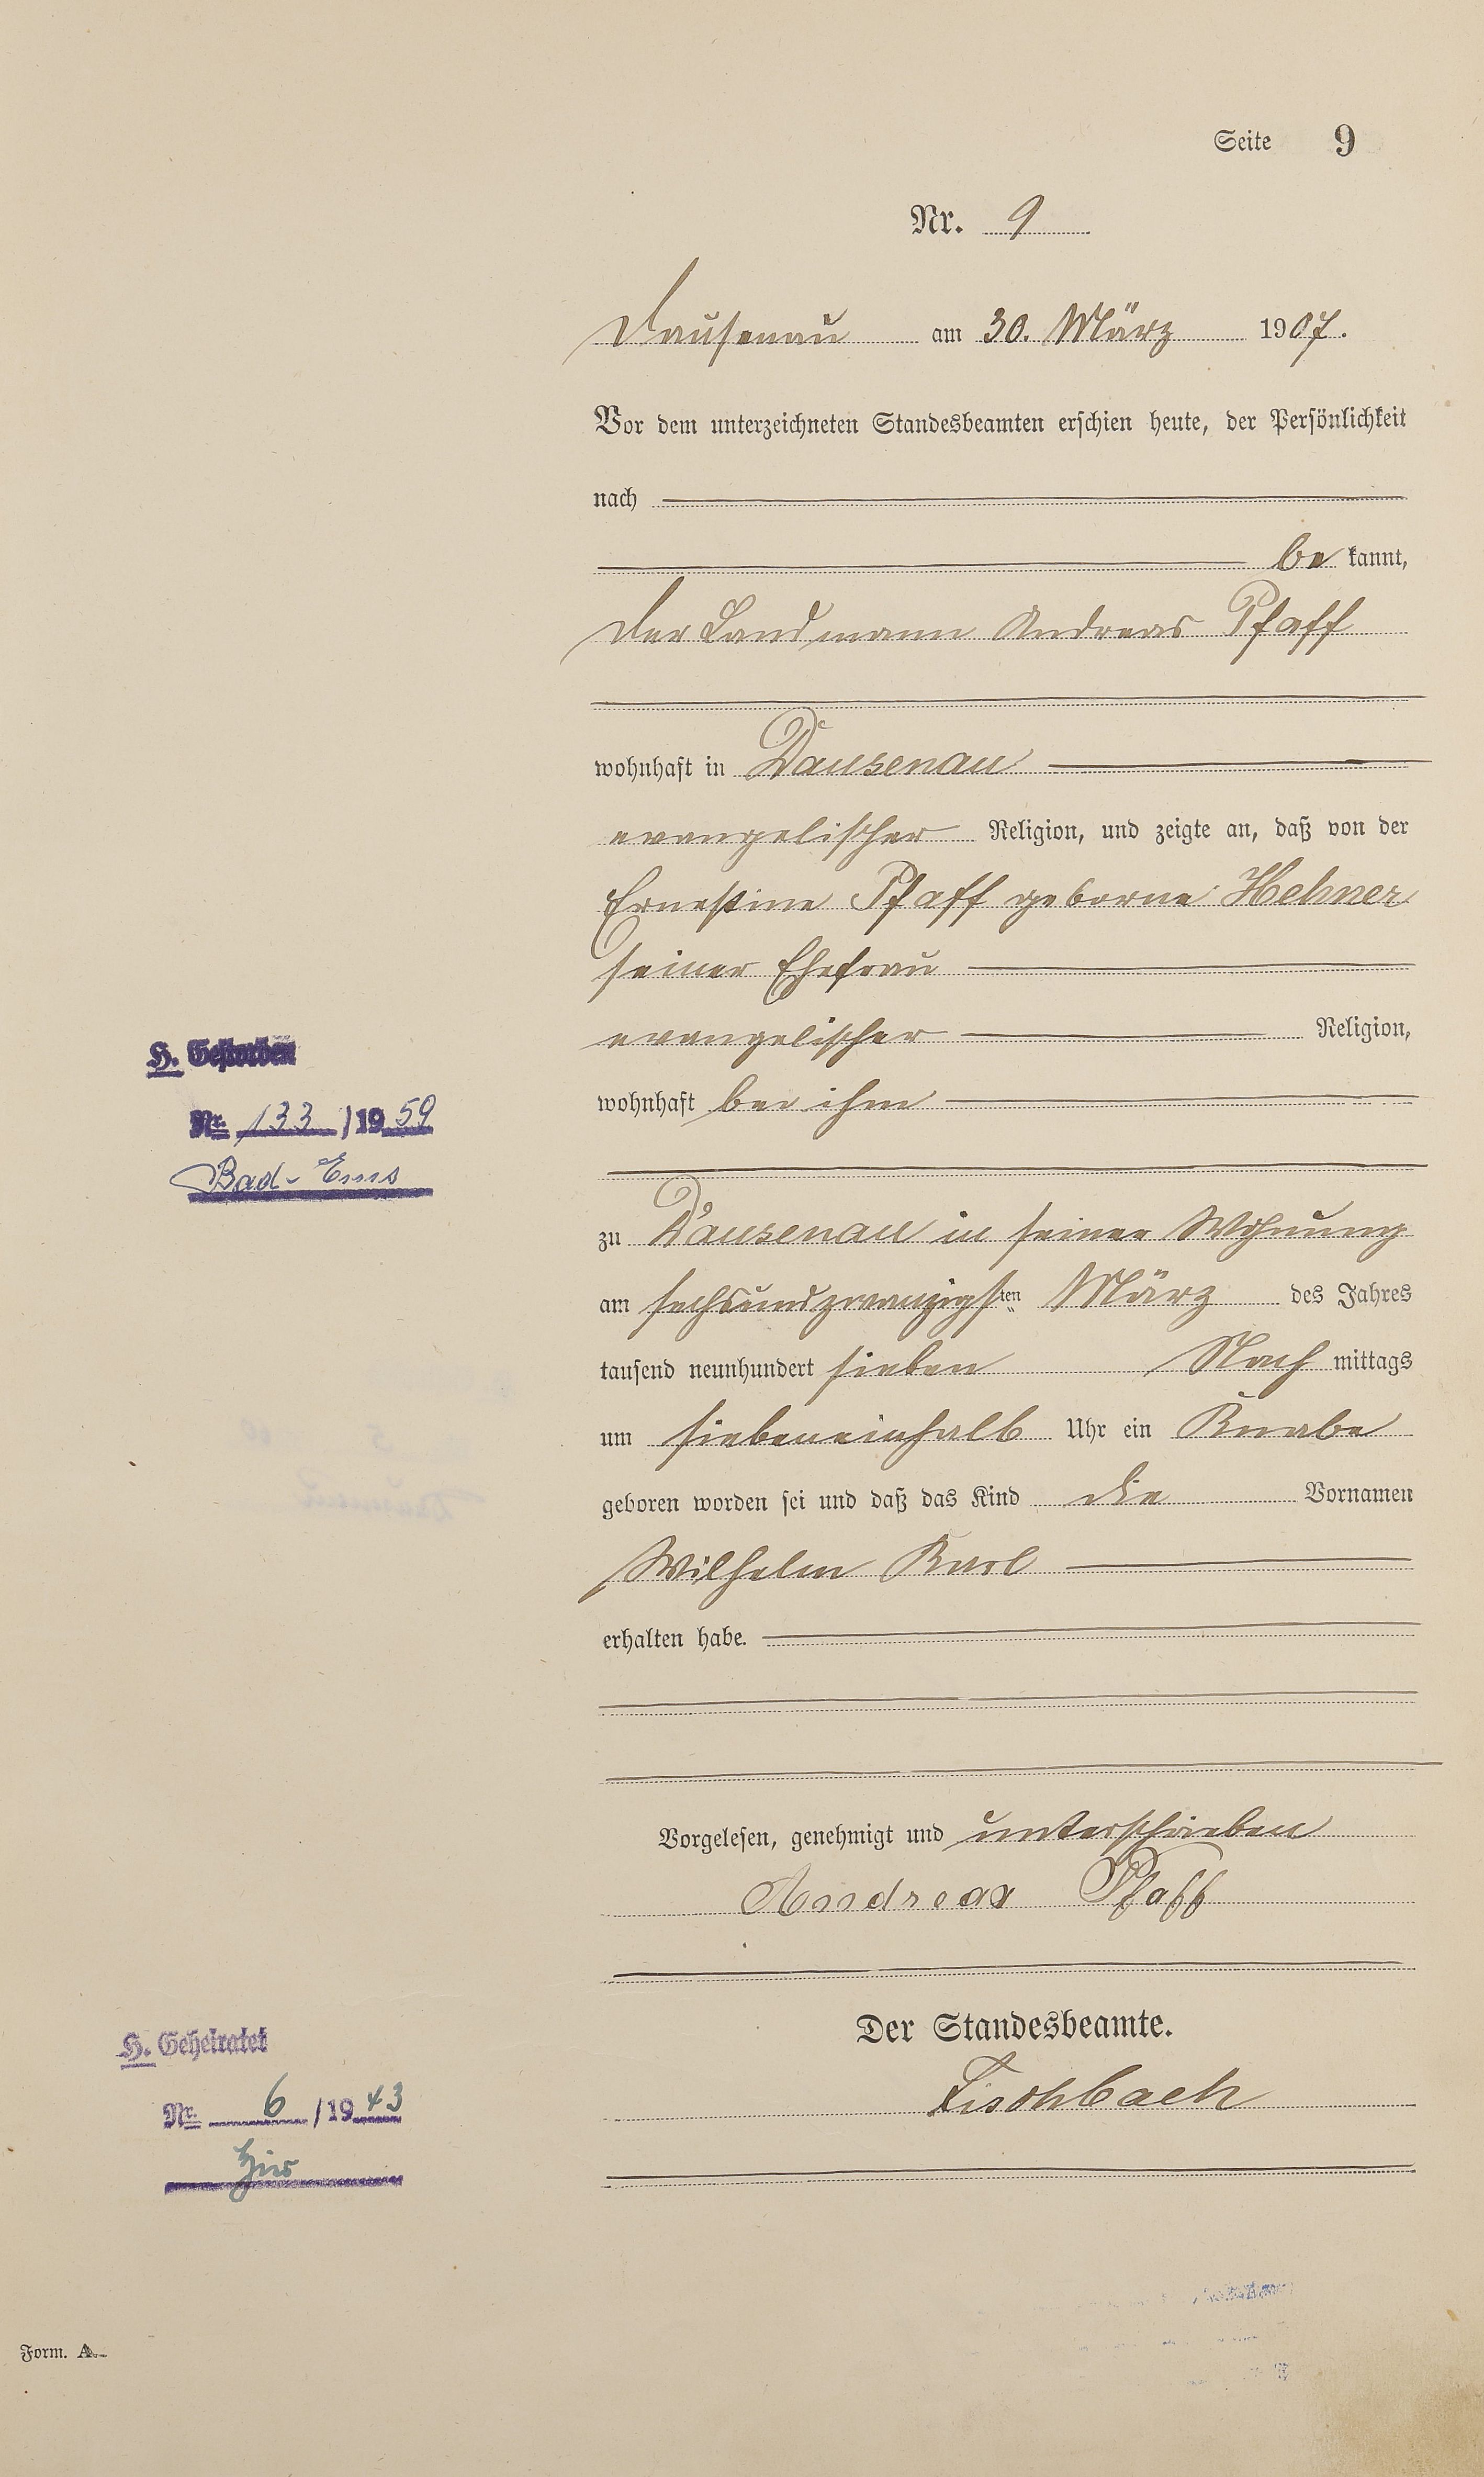 Seite 9
Nr. 9
Dausenau am 30. März 1907.
Vor dem unterzeichneten Standesbeamten erschien heute, der Persönlichkeit
nach
be kannt,
der Landmann Andreas Pfaff
wohnhaft in Dausenau
evangelischer Religion, und zeigte an, daß von der
Ernestine Pfaff geborne Hehner
seiner Ehefrau
evangelischer Religion,
wohnhaft bei ihm
zu Dausenau in seiner Wohnung
am sechsundzwanzigsten März des Jahres
tausend neunhundert sieben Nach mittags
um siebeneinhalb Uhr ein Knabe
geboren worden sei und daß das Kind die Vornamen
Wilhelm Karl
erhalten habe.
Vorgelesen, genehmigt und unterschrieben
Andreas Pfaff
Der Standesbeamte.
Fischbach
H. Gestorben
Nr. 133 / 19 59
Bad-Ems
H. Geheiratet
Nr. 6 / 19 43
hier
Form. A.